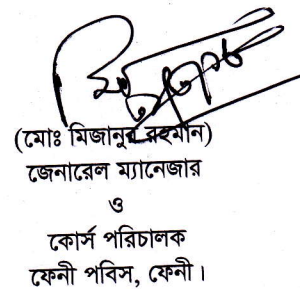 (মোঃ মিজানুর রহমান)
জেনারেল ম্যানেজার
ও
কোর্স পরিচালক
ফেনী পবিস, ফেনী।